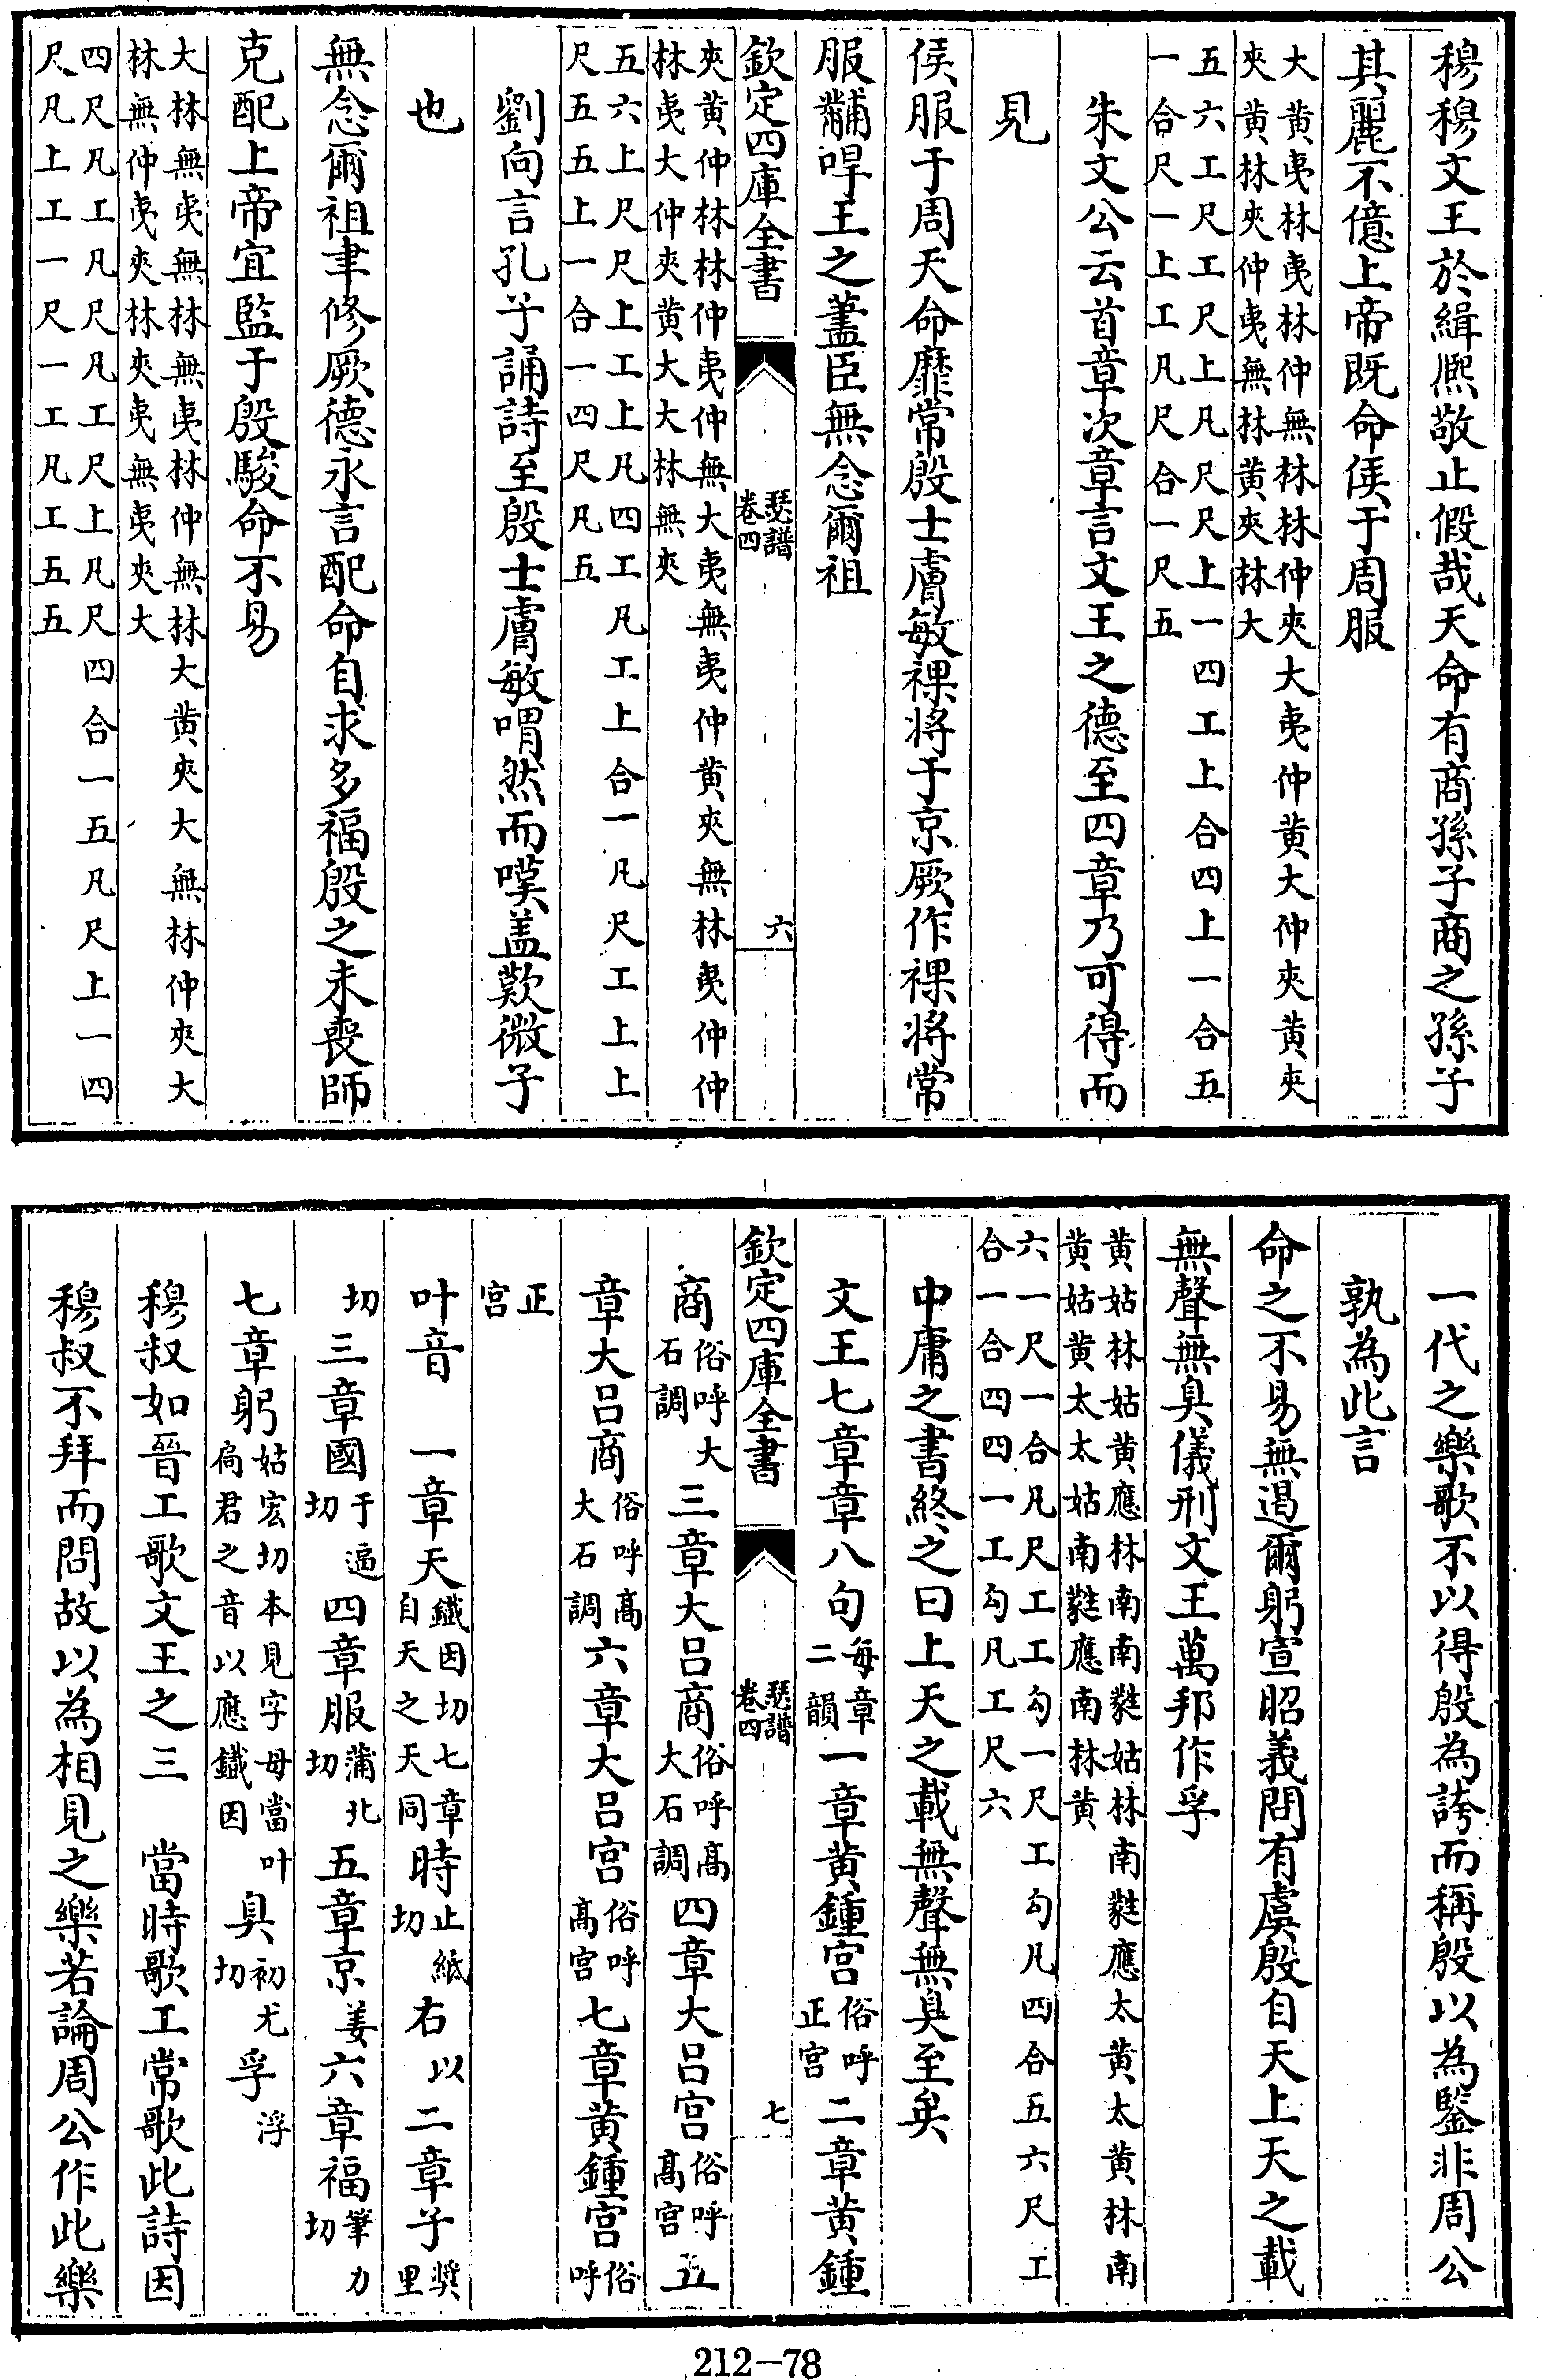 穆穆文王於緝熈敬止假哉天命有商孫子商之孫子
其麗不億上帝既命侯于周服
大黄夷林夷林仲無林林仲夾大夷仲黄大仲夾黄夾
夾黄林夾仲夷無林黄夾林大
五六工尺工尺上凡尺尺上一四工上合四上一合五
一合尺一上工凡尺合一尺五
朱文公云首章次章言文王之德至四章乃可得而
見
侯服于周天命靡常殷士膚敏祼将于京厥作祼将常
服黼哻王之藎臣無念爾祖
欽定四庫全書
瑟譜
卷四
六
夾黄仲林林仲夷仲無大夷無夷仲黄夾無林夷仲仲
林夷大仲夾黄大大林無夾
五六上尺尺上工上凡四工凡工上合一凡尺工上上
尺五五上一合一四尺凡五
劉向言孔子誦詩至殷士膚敏喟然而嘆盖歎微子
也
無念爾祖聿修厥德永言配命自求多福殷之未喪師
克配上帝宜監于殷駿命不易
大林無夷無林無夷林仲無林大黄夾大無林仲夾大
林無仲夷夾林夾夷無夷夾大
四尺凡工凡尺凡工尺上凡尺四合一五凡尺上一四
尺凡上工一尺一工凡工五五
一代之樂歌不以得殷為誇而稱殷以為鑒非周公
孰為此言
命之不易無遏爾躬宣昭義問有虞殷自天上天之載
無聲無臭儀刑文王萬邦作孚
黄姑林姑黄應林南南㽔姑林南㽔應太黄太黄林南
黄姑黄太太姑南㽔應南林黄
六一尺一合凡尺工工勾一尺工勾凡四合五六尺工
合一合四四一工勾凡工尺六
中庸之書終之曰上天之載無聲無臭至矣
文王七章章八句
每章
二韻
一章黄鍾宫
俗呼
正宫
二章黄鍾
欽定四庫全書
瑟譜
卷四
七
商
俗呼大
石調
三章大吕商
俗呼髙
大石調
四章大吕宫
俗呼
髙宫
五
章大吕商
俗呼髙
大石調
六章大吕宫
俗呼
髙宫
七章黄鍾宫
俗
呼
正
宫
叶音　一章天
鐵因切七章
自天之天同
時
止紙
切
右
以
二章子
奬
里
切
三章國
于逼
切
四章服
蒲北
切
五章京
姜
六章福
筆力
切
七章躬
姑宏切本見字母當叶
扃君之音以應鐵因
臭
初尤
切
孚
浮
穆叔如晉工歌文王之三　當時歌工常歌此詩因
穆叔不拜而問故以為相見之樂若論周公作此樂
212-78